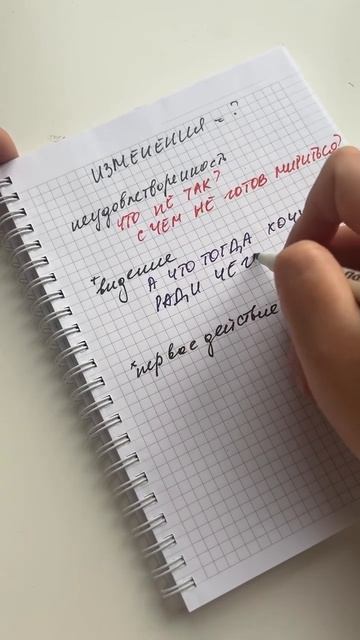 ИЗМЕНЕНИЯ = ?
неудовлетворенность
ЧТО НЕ ТАК?
С ЧЕМ НЕ ГОТОВ МИРИТЬСЯ?
*видение
А ЧТО ТОГДА ХОЧУ
РАДИ ЧЕГ
*первое действие